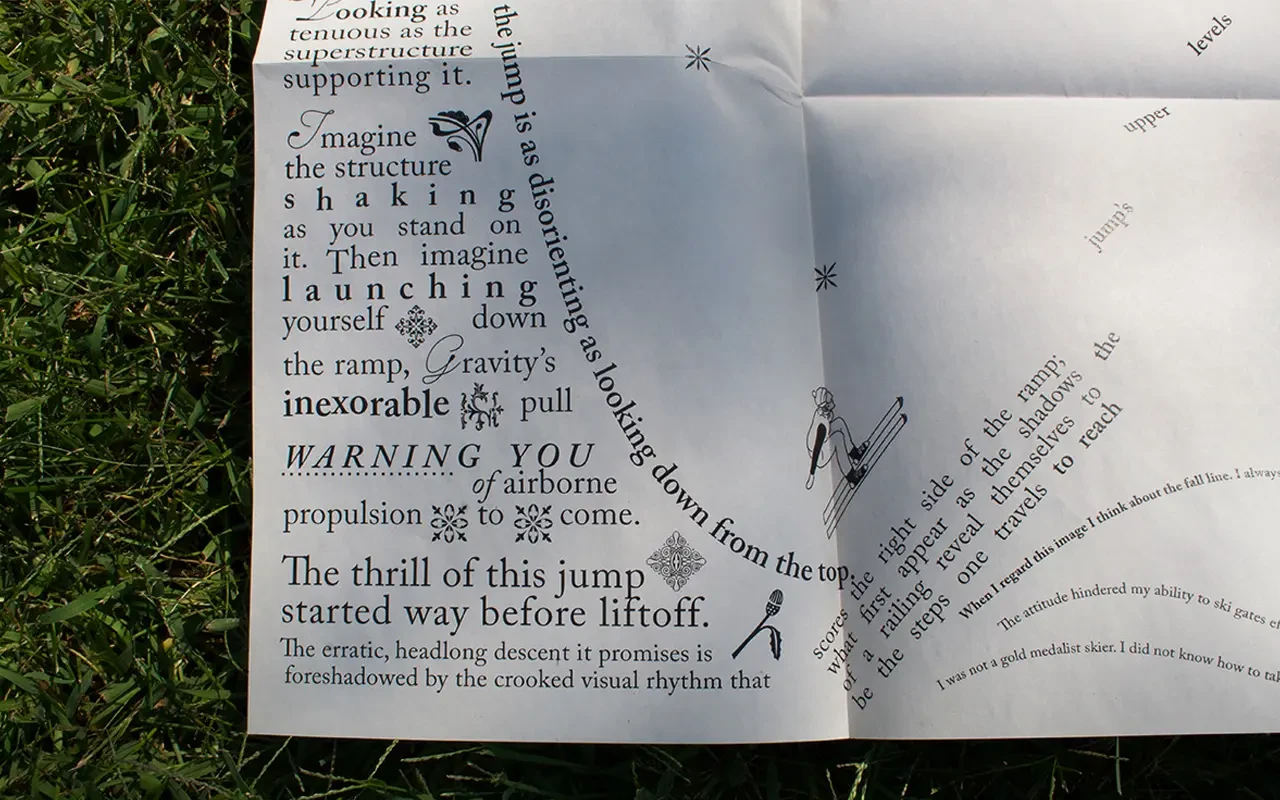 Looking as
tenuous as the
superstructure
supporting it.
Imagine
the structure
shaking
as you stand on
it. Then imagine
launching
yourself down
the ramp, Gravity's
inexorable pull
WARNING YOU
of airborne
propulsion to come.
The thrill of this jump
started way before liftoff.
The erratic, headlong descent it promises is
foreshadowed by the crooked visual rhythm that
scores the right side of the ramp;
what first appear as the shadows the
of a railing reveal themselves to
be the steps one travels to reach
jump's
upper
levels
the jump is as disorienting as looking down from the top.
When I regard this image I think about the fall line. I always
The attitude hindered my ability to ski gates
I was not a gold medalist skier. I did not know how to